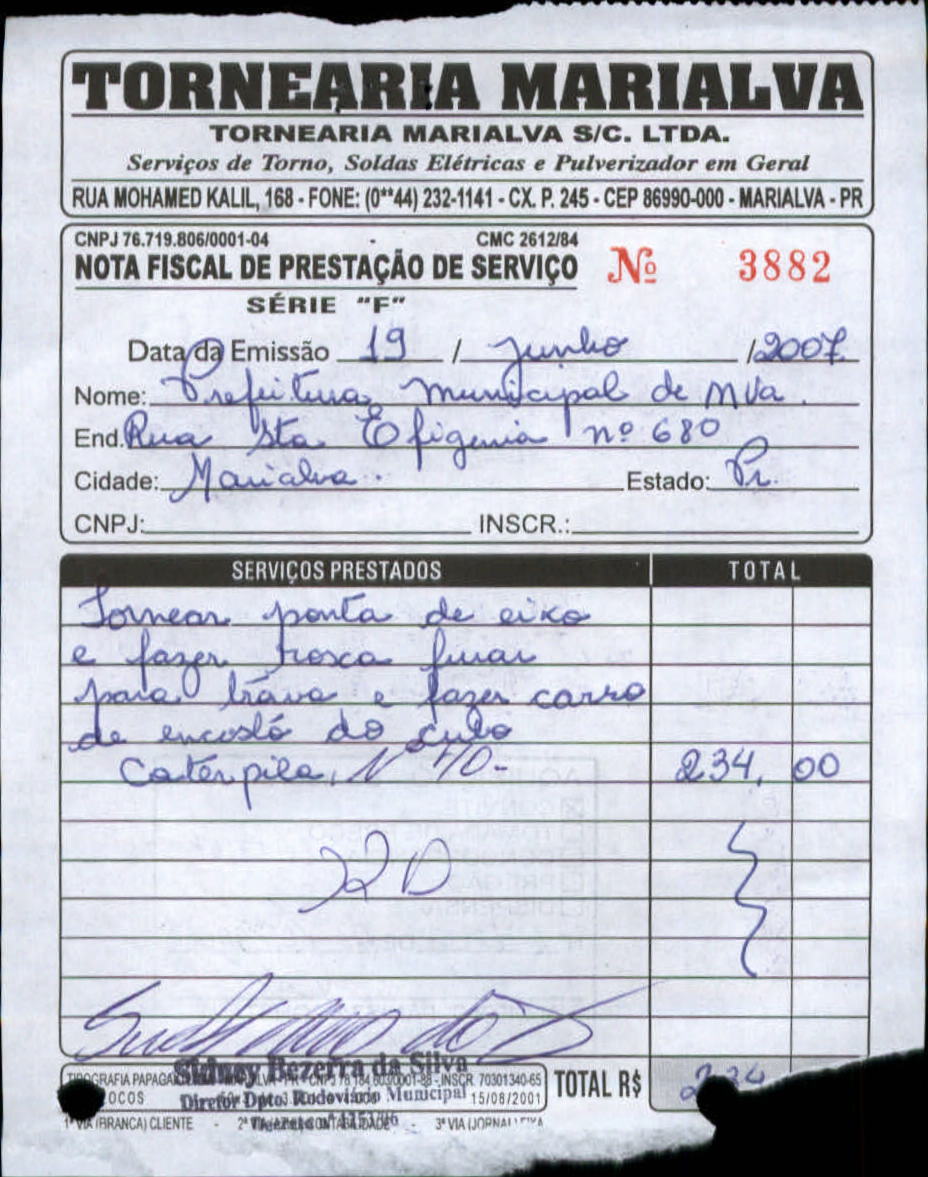 TORNEARIA MARIALVA
TORNEARIA MARIALVA S/C. LTDA.
Serviços de Torno, Soldas Elétricas e Pulverizador em Geral
RUA MOHAMED KALIL, 168 - FONE: (0**44) 232-1141 - CX. P. 245 - CEP 86990-000 - MARIALVA - PR
CNPJ 76.719.806/0001-04 CMC 2612/84
NOTA FISCAL DE PRESTAÇÃO DE SERVIÇO Nº 3882
SÉRIE "F"
Data da Emissão 19 / junho /2007
Nome: Prefeitura municipal de Mva.
End. Rua Sta Efigenia nº 680
Cidade: Marialva. Estado: Pr.
CNPJ: INSCR.:
SERVIÇOS PRESTADOS TOTAL
Tornear ponta de eixo
e fazer rosca furar
para trava e fazer carro
de encosto do cubo
Caterpila, Nº 40- 234,00
Sidney Bezerra da Silva
Diretor Dpto. Rodoviário Municipal
INSCR. 70301340-65
15/08/2001
TOTAL R$ 234
1ª VIA (BRANCA) CLIENTE - 2ª - 3ª VIA